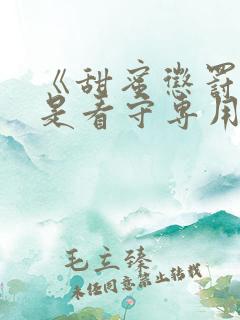 《甜蜜懲罰
是看守專用
毛立臻
未经同意禁止转载